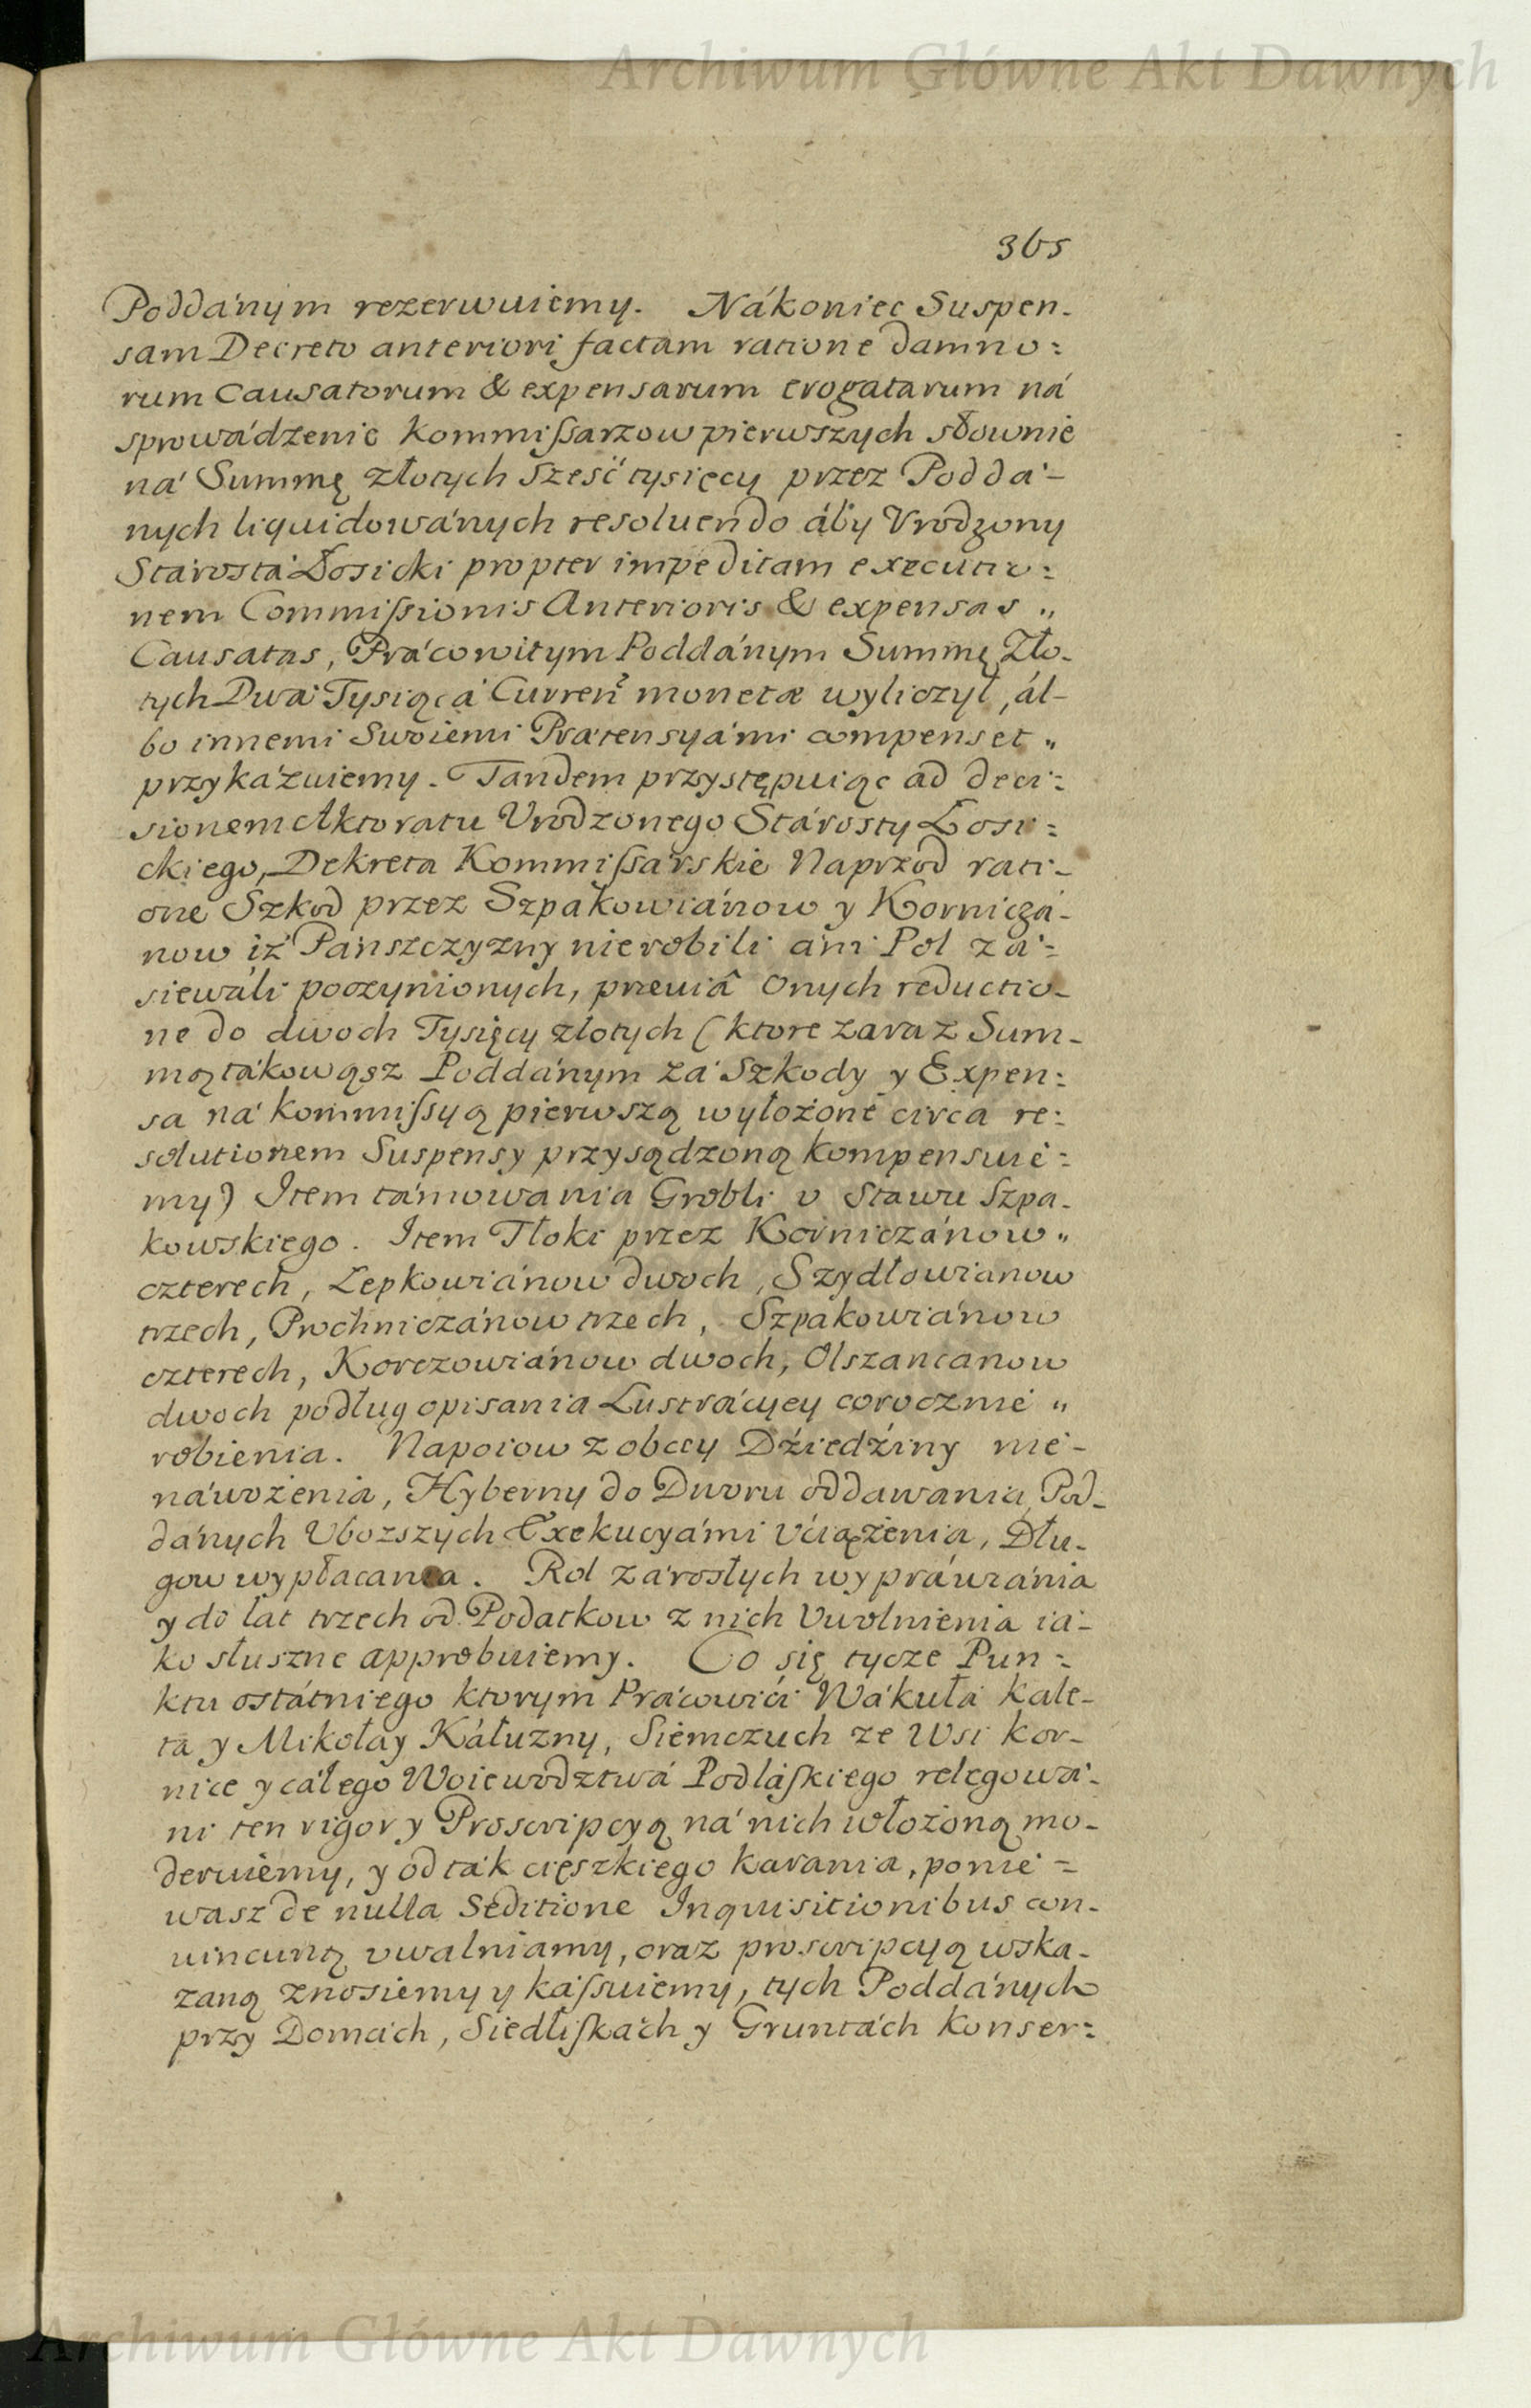 Archiwum Główne Akt Dawnych
365
Poddánym rezerwuiemy. Nákoniec Suspen-
sam Decreto anteriori factam ratione damno:
rum Causatorum & expensarum erogatarum ná
sprowádzenie Kommißarzow pierwszych słownie
ná Summę złotych Sześć tysięcy przez Poddá-
nych liquidowánych resoluendo áby Vrodzony
Stárostá Łosicki propter impeditam executio:
nem Commißionis Anterioris & expensas „
Causatas, Prácowitym Poddánym Summę Zło-
tych Dwá Tysiącá Curren̄ monetæ wyliczył, ál-
bo innemi Swoiemi Prætensyámi compenset „
przykázuiemy. Tandem przystępuiąc ad deci:
sionem Aktoratu Vrodzonego Stárosty Łosi:
ckiego, Dekreta Kommißarskie Naprzod rati-
one Szkod przez Szpakowiánow y Kornicza-
now iż Panszczyzny nie robili áni Pol zá:
siewáli poczynionych, præuiâ Onych reductio-
ne do dwoch Tysięcy złotych (ktore zaraz Sum-
mą tákowąsz Poddánym zá Szkody y Expen:
sa ná kommißyą pierwszą wyłożone circa re:
solutionem Suspensy przysądzoną kompensuie:
my) Item támowania Grobli v Stawu Szpa-
kowskiego. Item Tłoki przez Korniczánow „
czterech, Łepkowiánow dwoch, Szydłowianow
trzech, Prochniczánow trzech, Szpakowiánow
czterech, Korczowiánow dwoch, Olszancanow
dwoch podług opisania Lustrácyey corocznie „
robienia. Napoiow z obcey Dźiedźiny nie-
náwożenia, Hyberny do Dworu oddawania, Pod-
dánych Vbozszych Exekucyámi Vciążenia, Dłu-
gow wypłacania. Rol zárosłych wypráwiánia
y do lat trzech od Podatkow z nich Vwolnienia iá-
ko słuszne approbuiemy. Co się tycze Pun:
ktu ostátniego ktorym Prácowići Wákułá kale-
ta y Mikołay Káłuzny, Siemczuch ze Wsi Kor-
nice y całego Woiewodztwá Podláskiego relegowá-
ni ten rigor y Proscripcyą ná nich włożoną mo-
deruiemy, y od ták cięszkiego karania, ponie=
wasz de nulla Seditione Inquisitionibus con-
uincuntꝫ vwalniamy, oraz proscripcyą wska-
zaną znosiemy y kassuiemy, tych Poddánych
przy Domách, Siedliskách y Gruntách konser:
Archiwum Główne Akt Dawnych